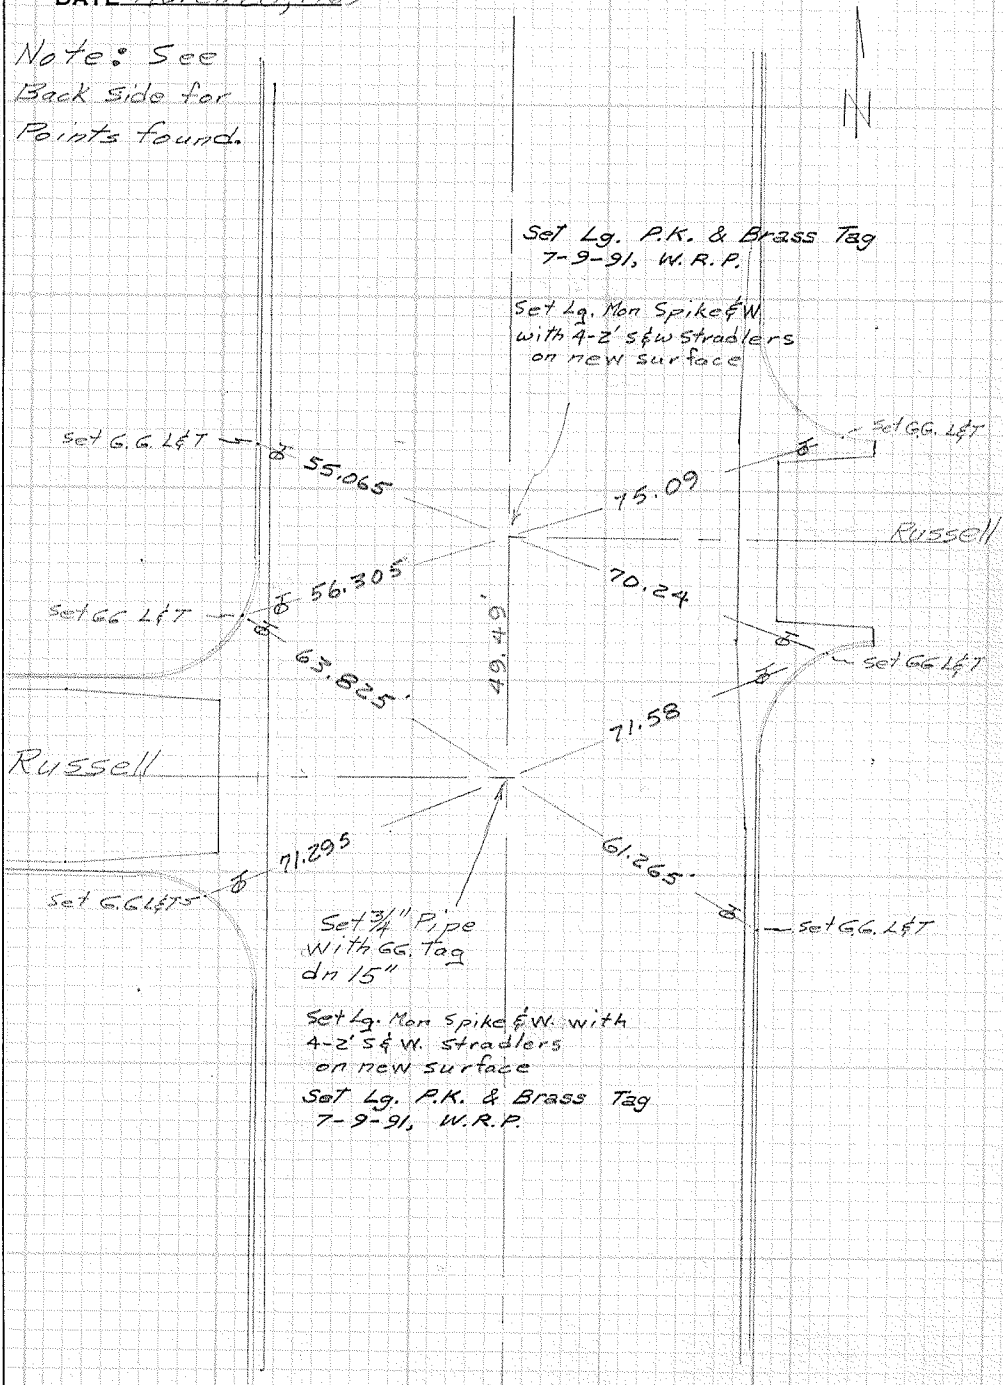 DATE
Note: See
Back Side for
Points found.
N
Set Lg. P.K. & Brass Tag
7-9-91, W.R.P.
Set Lg. Mon Spike & W
with 4-2' S & W Stradlers
on new surface
Set G.G. L&T
55.065
75.09
Set GG. L&T
Russell
56.305
70.24
Set GG L&T
49.49'
63.825'
Set GG L&T
71.58
Russell
71.295
61.265'
Set G.G L&T
Set G.G. L&T
Set 3/4" Pipe
With GG. Tag
dn 15"
Set Lg. Mon Spike & W. with
4-2' S & W. Stradlers
on new surface
Set Lg. P.K. & Brass Tag
7-9-91, W.R.P.